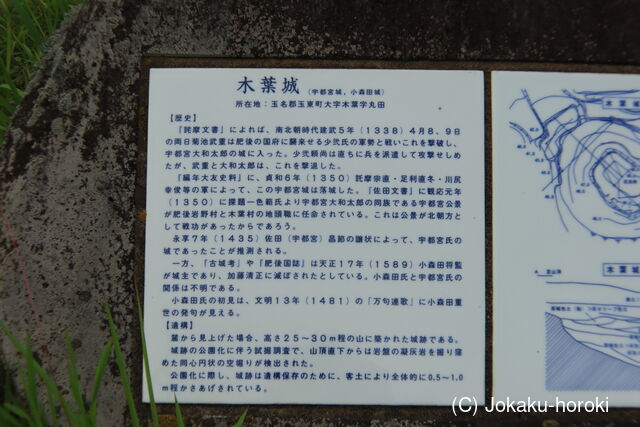 木葉城 (宇都宮城、小森田城)
所在地:玉名郡玉東町大字木葉字丸田
【歴史】
『詫摩文書』によれば、南北朝時代建武5年(1338)4月8、9日
の両日菊池武重は肥後の国府に襲来せる少弐氏の軍勢と戦いこれを撃破し、
宇都宮大和太郎の城に入った。少弐頼尚は直ちに兵を派遣して攻撃せし
めたが、武重と大和太郎は、これを撃退した。
『編年大友史料』に、貞和6年(1350)詫摩宗直・足利直冬・川尻
幸俊等の軍によって、この宇都宮城は落城した。『佐田文書』に観応元年
(1350)に探題一色範氏より宇都宮大和太郎の同族である宇都宮公景
が肥後岩野村と木葉村の地頭職に任命されている。これは公景が北朝方と
して戦功があったからであろう。
永享7年(1435)佐田(宇都宮)昌節の譲状によって、宇都宮氏の
城であったことが推測される。
一方、『古城考』や『肥後国誌』は天正17年(1589)小森田将監
が城主であり、加藤清正に滅ぼされたとしている。小森田氏と宇都宮氏の
関係は不明である。
小森田氏の初見は、文明13年(1481)の「万句連歌」に小森田重
世の発句が見える。
【遺構】
麓から見上げた場合、高さ25〜30m程の山に築かれた城跡である。
城跡の公園化に伴う試掘調査で、山頂直下からは岩盤の凝灰岩を掘り窪
めた同心円状の空堀りが検出された。
公園化に際し、城跡は遺構保存のために、客土により全体的に0.5〜1.0
m程かさあげされている。
木葉
木葉
(C) Jokaku-horoki